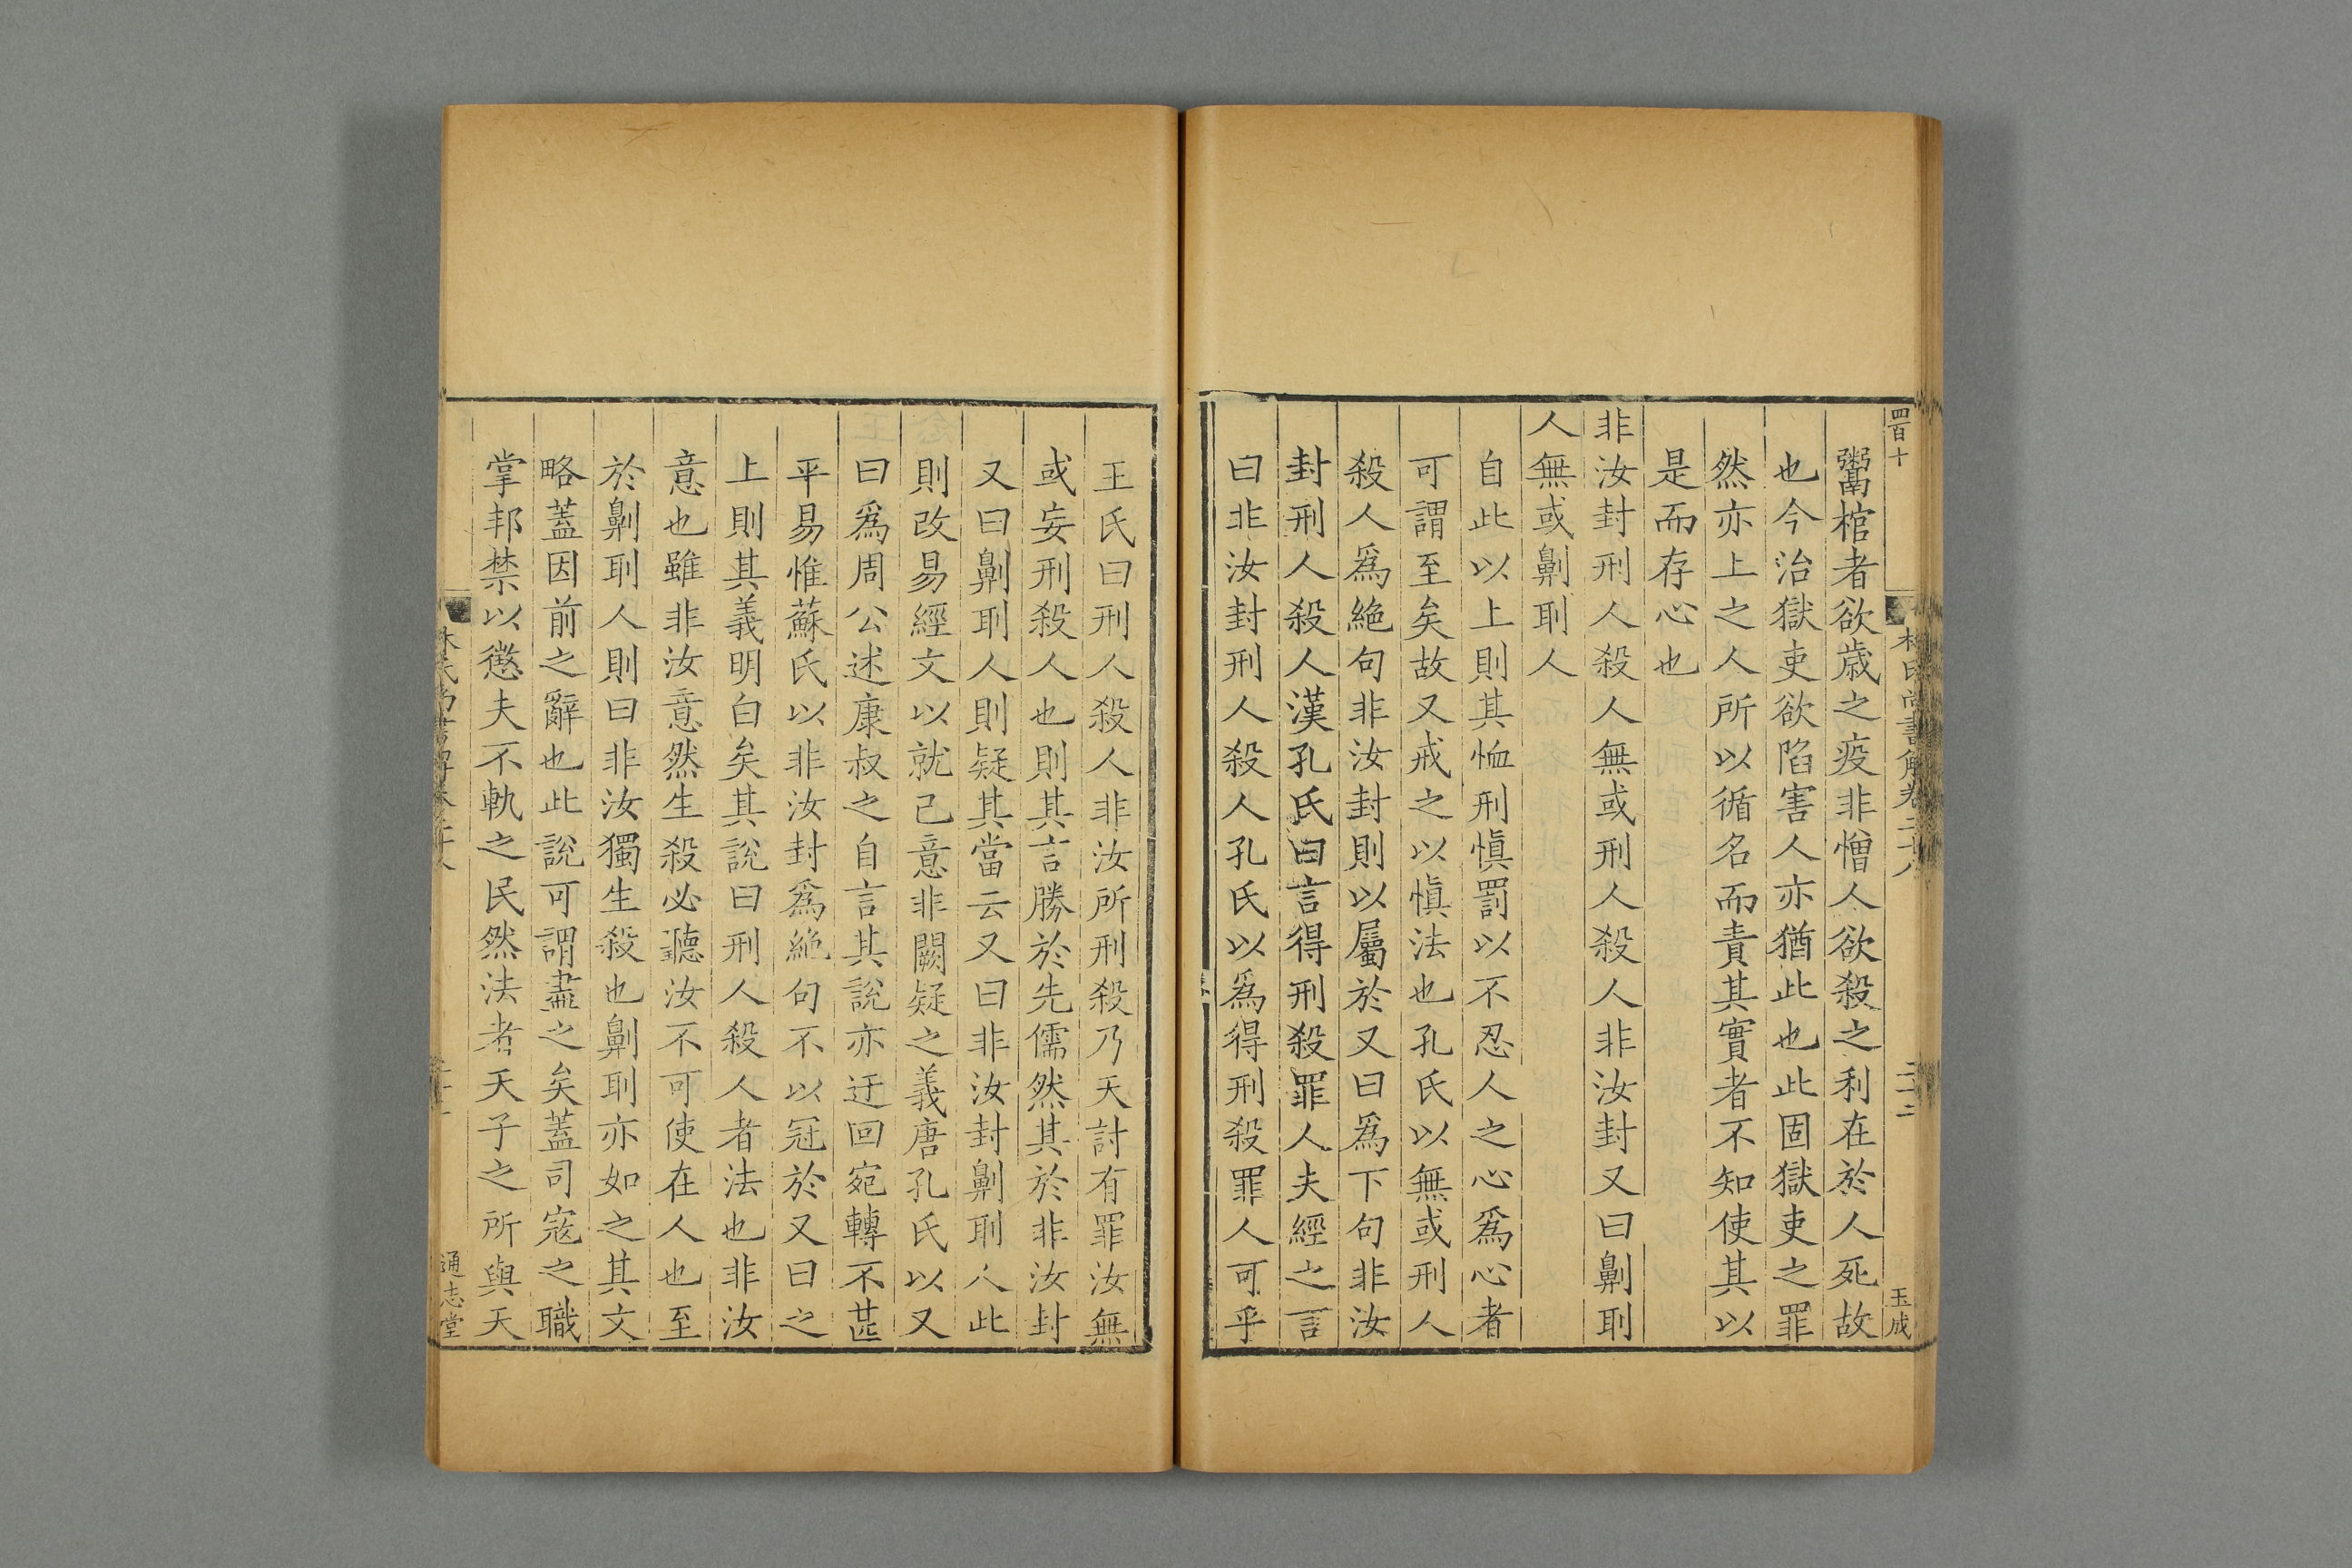 四百十
林氏尚書解卷二十八
二十二
玉成
鬻棺者欲歲之疫非憎人欲殺之利在於人死故
也今治獄吏欲陷害人亦猶此也此固獄吏之罪
然亦上之人所以循名而責其實者不知使其以
是而存心也
非汝封刑人殺人無或刑人殺人非汝封又曰劓刵
人無或劓刵人
自此以上則其恤刑愼罰以不忍人之心爲心者
可謂至矣故又戒之以愼法也孔氏以無或刑人
殺人爲絕句非汝封則以屬於又曰爲下句非汝
封刑人殺人漢孔氏曰言得刑殺罪人夫經之言
曰非汝封刑人殺人孔氏以爲得刑殺罪人可乎
王氏曰刑人殺人非汝所刑殺乃天討有罪汝無
或妄刑殺人也則其言勝於先儒然其於非汝封
又曰劓刵人則疑其當云又曰非汝封劓刵人此
則改易經文以就己意非闕疑之義唐孔氏以又
曰爲周公述康叔之自言其說亦迂回宛轉不甚
平易惟蘇氏以非汝封爲絕句不以冠於又曰之
上則其義明白矣其說曰刑人殺人者法也非汝
意也雖非汝意然生殺必聽汝不可使在人也至
於劓刵人則曰非汝獨生殺也劓刵亦如之其文
略蓋因前之辭也此說可謂盡之矣蓋司寇之職
掌邦禁以懲夫不軌之民然法者天子之所與天
通志堂